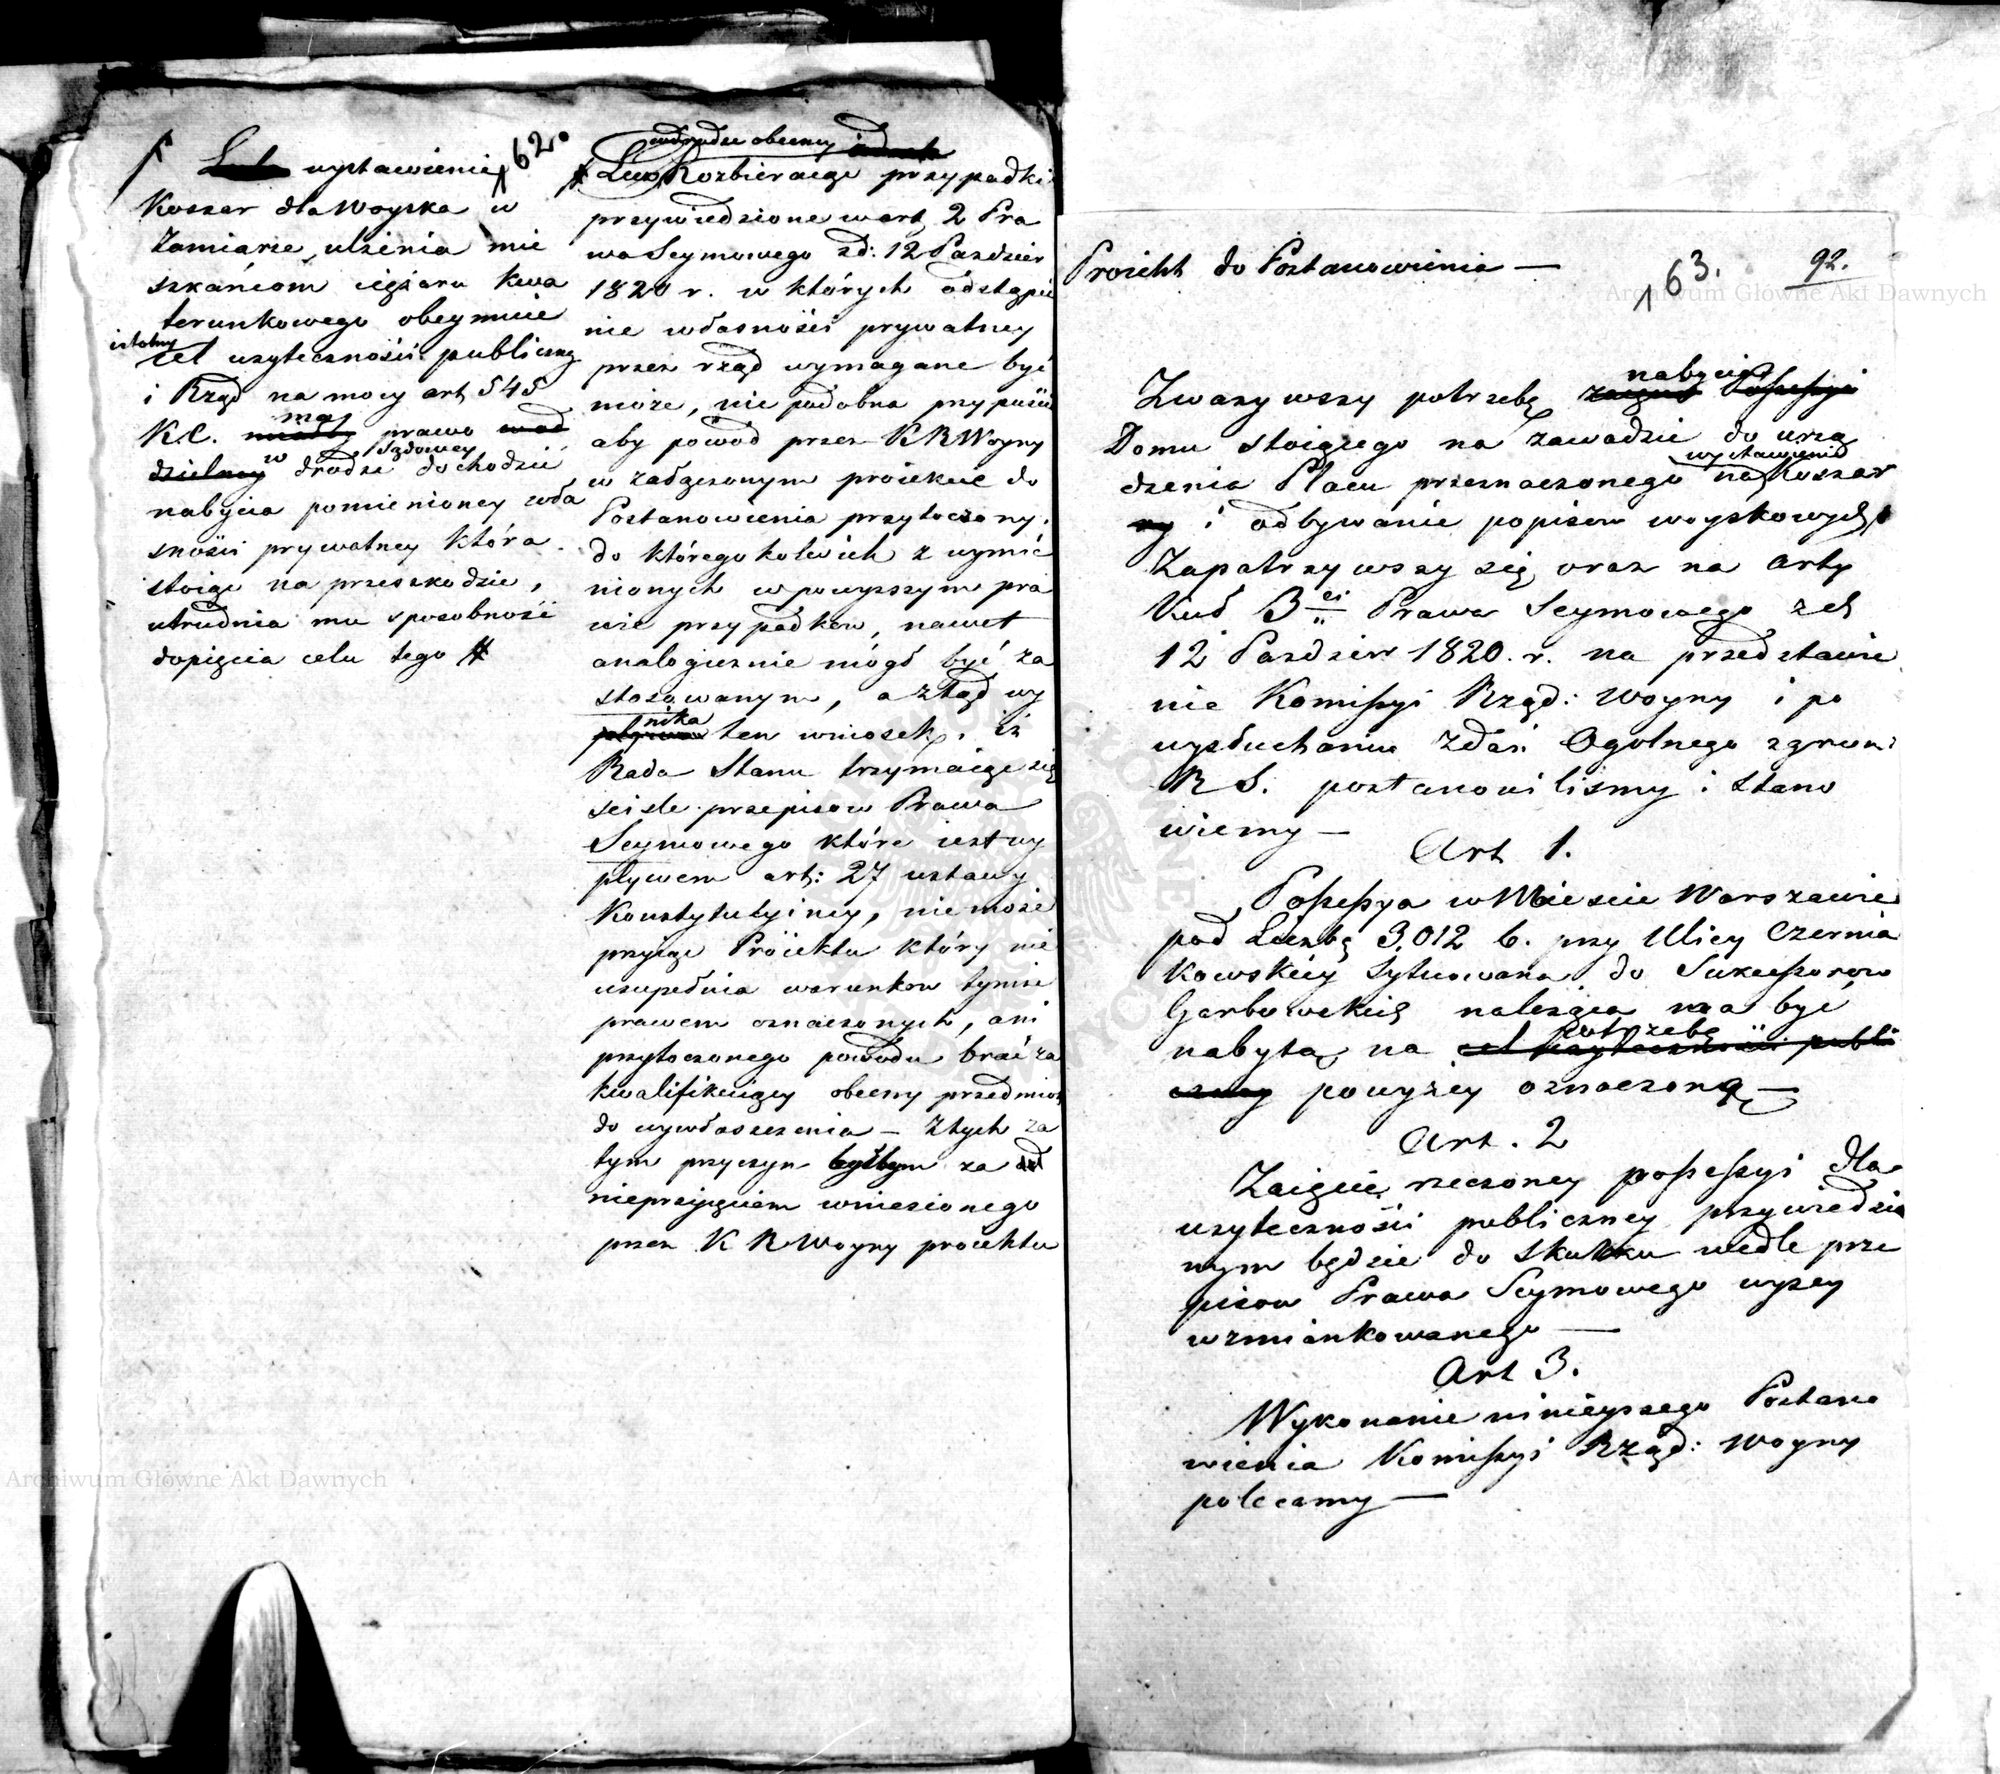 162.
wystawienie
Koszar dla Woyska w
Zamiarze, ulżenia mie
szkańcom ciężaru kwa
terunkowego obeymuie
istotny
cel użyteczności publiczney
i Rząd na mocy art 545
ma
K.C. prawo
w Sądowey
dzielney drodze dochodzić
nabycia pomienioney wła
sności prywatney która
stoiąc na przeszkodzie,
utrudnia mu sposobność
dopięcia celu tego #
obecney
# Lecz Rozbieraiąc przypadki
przywiedzione w art 2 Pra
wa Seymowego zd: 12 Pazdzier
1820 r. w których odstąpie
nie własności prywatney
przez rząd wymagane być
może, nie podobna przypuścić
aby powód przez KRWoyny
w załączonym proiekcie do
Postanowienia przytoczony,
do któregokolwiek z wymie
nionych w powyższym pra
wie przypadków, nawet
analogicznie mógł być za
stosowanym, a ztąd wy
nika
ten wniosek, iż
Rada Stanu trzymaiąc się
ściśle przepisow Prawa
Seymowego które iest wy
pływem art: 27 ustawy
Konstytucyiney, nie może
przyiąć Proiektu który nie
uzupełnia warunkow tymże
prawem oznaczonych, ani
przytoczonego powodu brać za
kwalifikuiący obecny przedmiot
do wywłaszczenia — Z tych za
tym przyczyn byłbym za
nieprzyięciem wniesionego
przez K R Woyny proiektu
Proiekt do Postanowienia —
163.
92.
Archiwum Główne Akt Dawnych
nabycia
Zważywszy potrzebę zaięcia Possessyi
Domu stoiącego na zawadzie do urzą
wystawienie
dzenia Placu przeznaczonego na Koszar
i odbywanie popisow woyskowych
Zapatrzywszy się oraz na Arty
kuł 3ci Prawa Seymowego zd
12 Pazdzier 1820. r. na przedstawie
nie Komissyi Rząd: Woyny i po
wysłuchaniu zdań Ogolnego zgrom:
R S. postanowiliśmy i stano
wiemy —
Art 1.
Possessya w Mieście Warszawie
pod Liczbą 3,012 b. przy Ulicy Czernia
kowskiey sytuowana do Sukcessorow
Garbowskich należąca ma być
potrzebę
nabytą na cel użyteczności publi
czney powyżey oznaczoną —
Art. 2
Zaięcie rzeczoney possessyi dla
użyteczności publiczney przywiedzio
nym będzie do skutku wedle prze
pisow Prawa Seymowego wyżey
wzmiankowanego —
Art 3.
Wykonanie ninieyszego Postano
wienia Komissyi Rząd: Woyny
polecamy —
Archiwum Główne Akt Dawnych